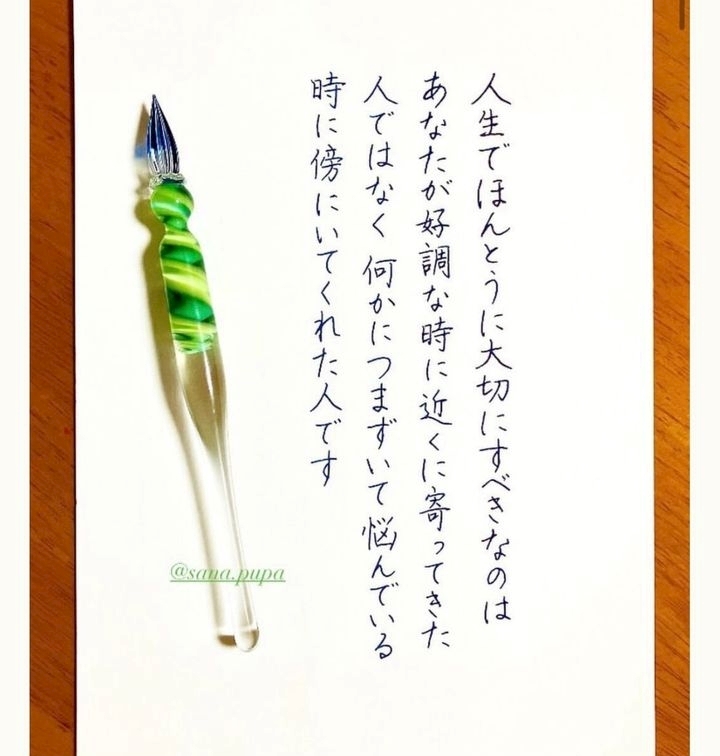 人生でほんとうに大切にすべきなのは
あなたが好調な時に近くに寄ってきた
人ではなく 何かにつまずいて悩んでいる
時に傍にいてくれた人です
@sana.pupa